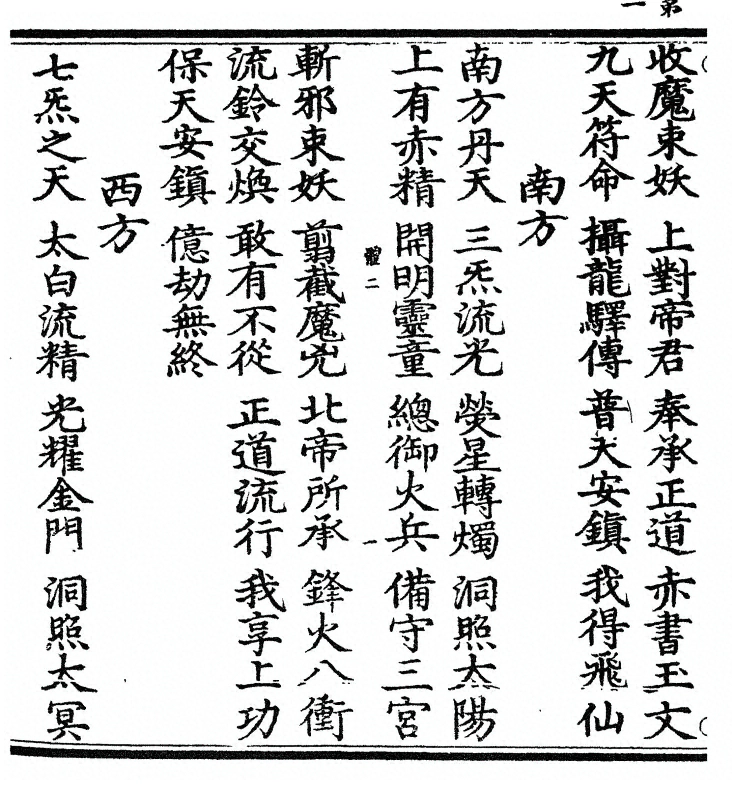 第一
收魔束妖　上對帝君　奉承正道　赤書玉文
九天符命　攝龍驛傳　普天安鎮　我得飛仙
南方
南方丹天　三炁流光　熒星轉燭　洞照太陽
上有赤精　開明靈童　總御火兵　備守三宮
體二
斬邪束妖　翦截魔兇　北帝所承　鋒火八衝
流鈴交煥　敢有不從　正道流行　我享上功
保天安鎮　億劫無終
西方
七炁之天　太白流精　光耀金門　洞照太冥